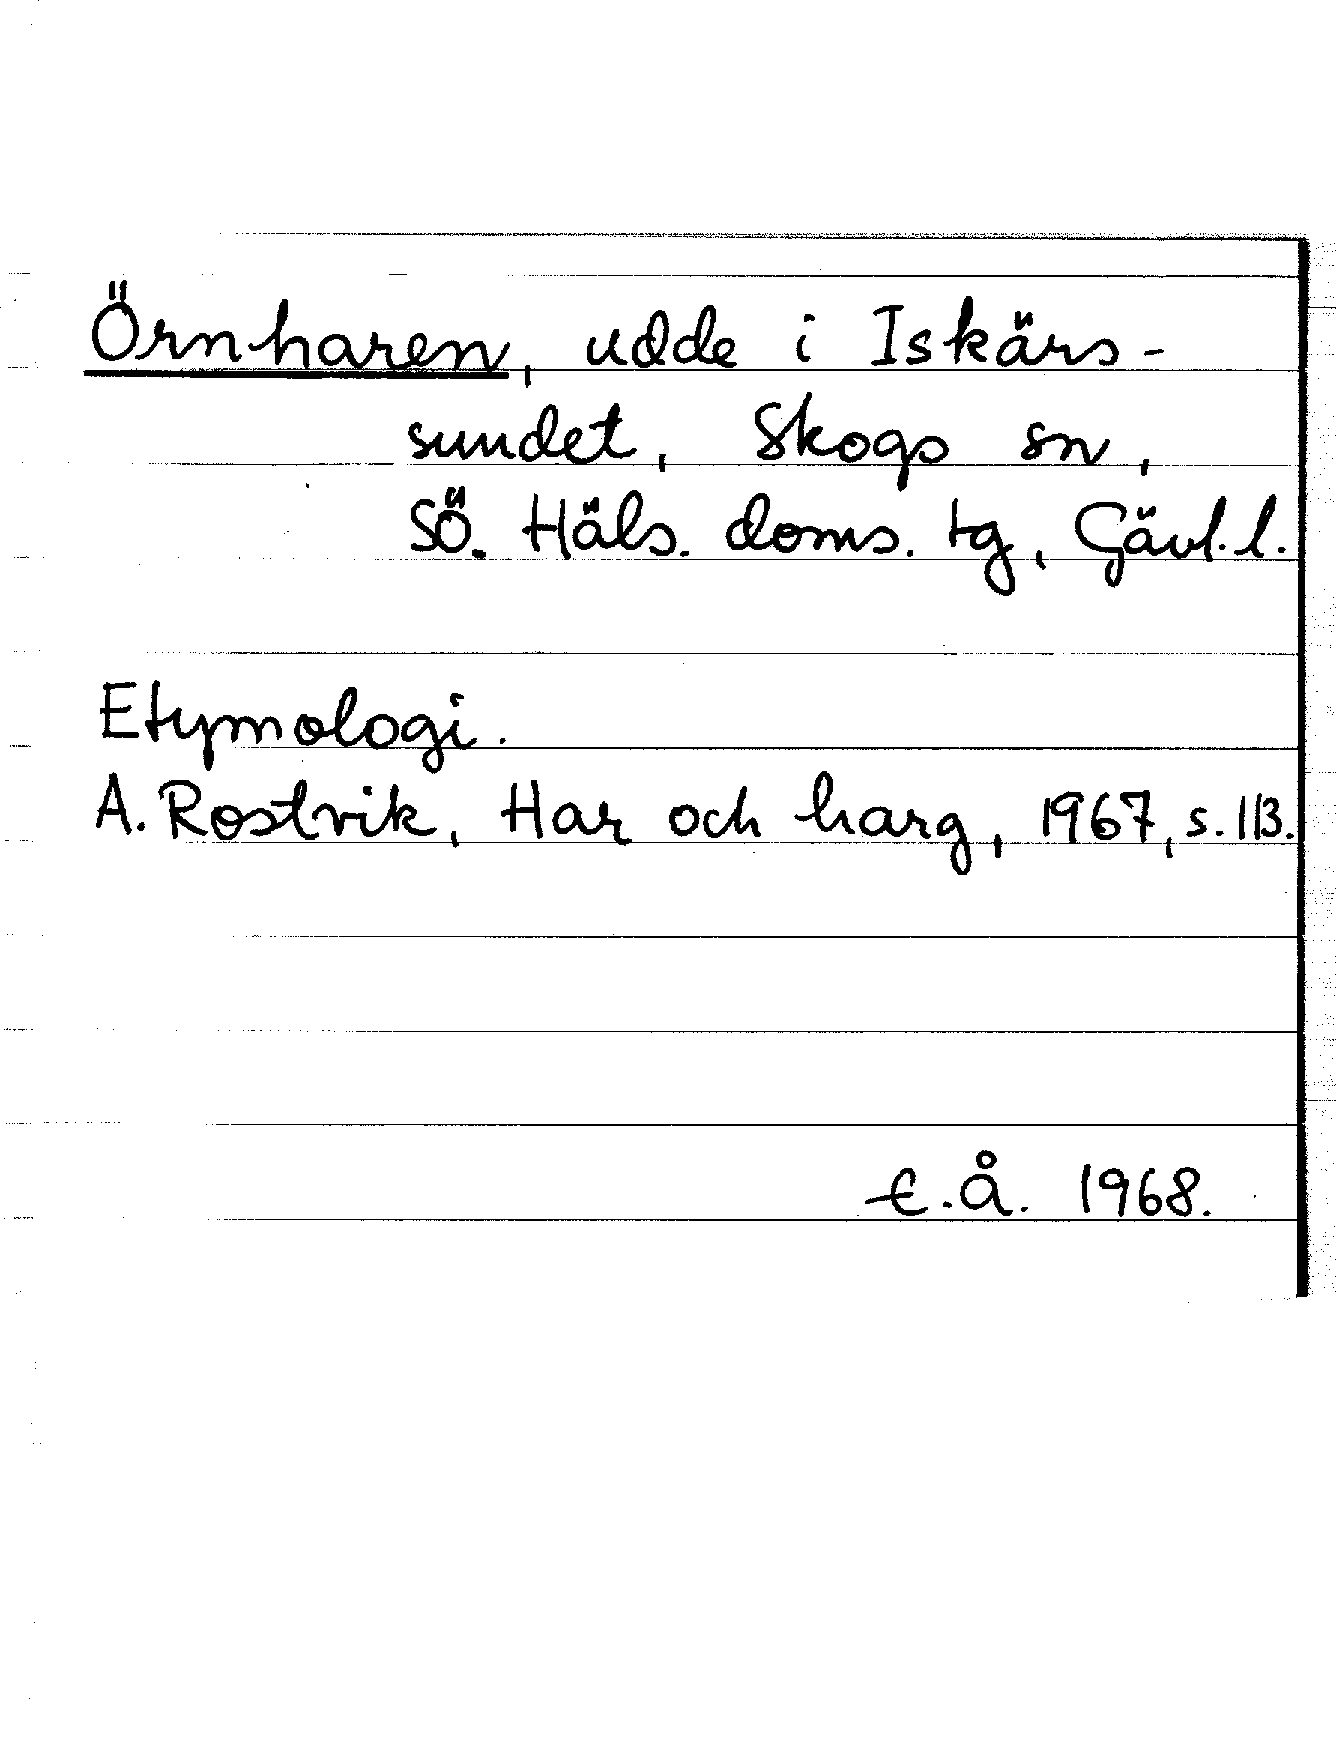 Örnharen, udde i Iskärs-
sundet, Skogs sn,
SÖ. Häls. doms. tg, Gävl. l.
Etymologi.
A. Rostvik, Har och harg, 1967, s. 113.
E.Å. 1968.